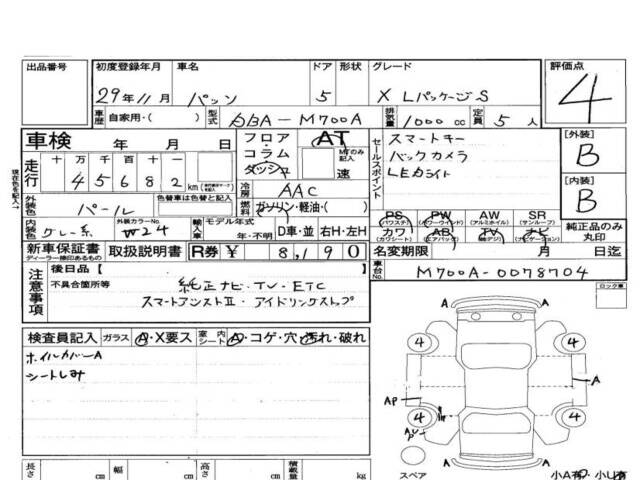 出品番号
初度登録年月 車名 ドア 形状 グレード 評価点
29年11月 パッソ 5 X Lパッケージ S 4
車歴 自家用・( ) 型式 DBA-M700A 排気量 1000 cc 定員 5 人
車検 年 月 日
フロア・コラム ダッシュ AT MTのみ記入 速
セールスポイント
スマートキー
バックカメラ
LEDライト
[外装] B
[内装] B
走行 十 万 千 百 十
4 5 6 8 2 km
冷房 AAC
外装色 パール 色替車は色替と記入
燃料 ガソリン・軽油・( )
内装色 グレー系 外装カラーNo. W24 輸入車 モデル年式 年・不明 D車・並 右H・左H
PS (パワステ) PW (パワーウインド) AW (アルミホイル) SR (サンルーフ)
カワ (カワシート) AB (エアバック) TV (純デジ) ナビ (ナビゲーション)
純正品のみ丸印
現在色を記入↑
新車保証書 ディーラー捺印あるもの 取扱説明書 R券 ¥ 8,190
名変期限 月 日迄
車台No. M700A-0078704
注意事項
後日品 [ ]
不具合箇所等 純正ナビ・TV・ETC
スマートアシストⅡ・アイドリングストップ
ロック車
検査員記入 ガラス A・X要ス 室内シート A・コゲ・穴・汚れ・破れ
ホイルカバーA
シートしみ
4 4
A A
AP
4 4
スペア
長さ cm 幅 cm 高さ cm 積載量 kg